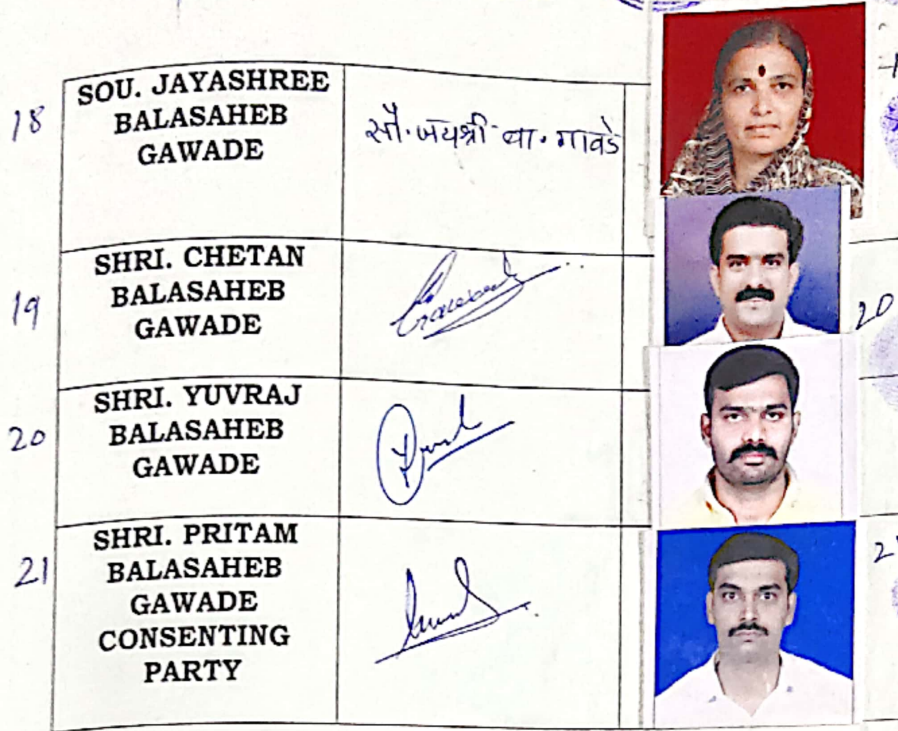 18
SOU. JAYASHREE
BALASAHEB
GAWADE
सौ. जयश्री बा. गावडे
19
SHRI. CHETAN
BALASAHEB
GAWADE
20
20
SHRI. YUVRAJ
BALASAHEB
GAWADE
21
SHRI. PRITAM
BALASAHEB
GAWADE
CONSENTING
PARTY